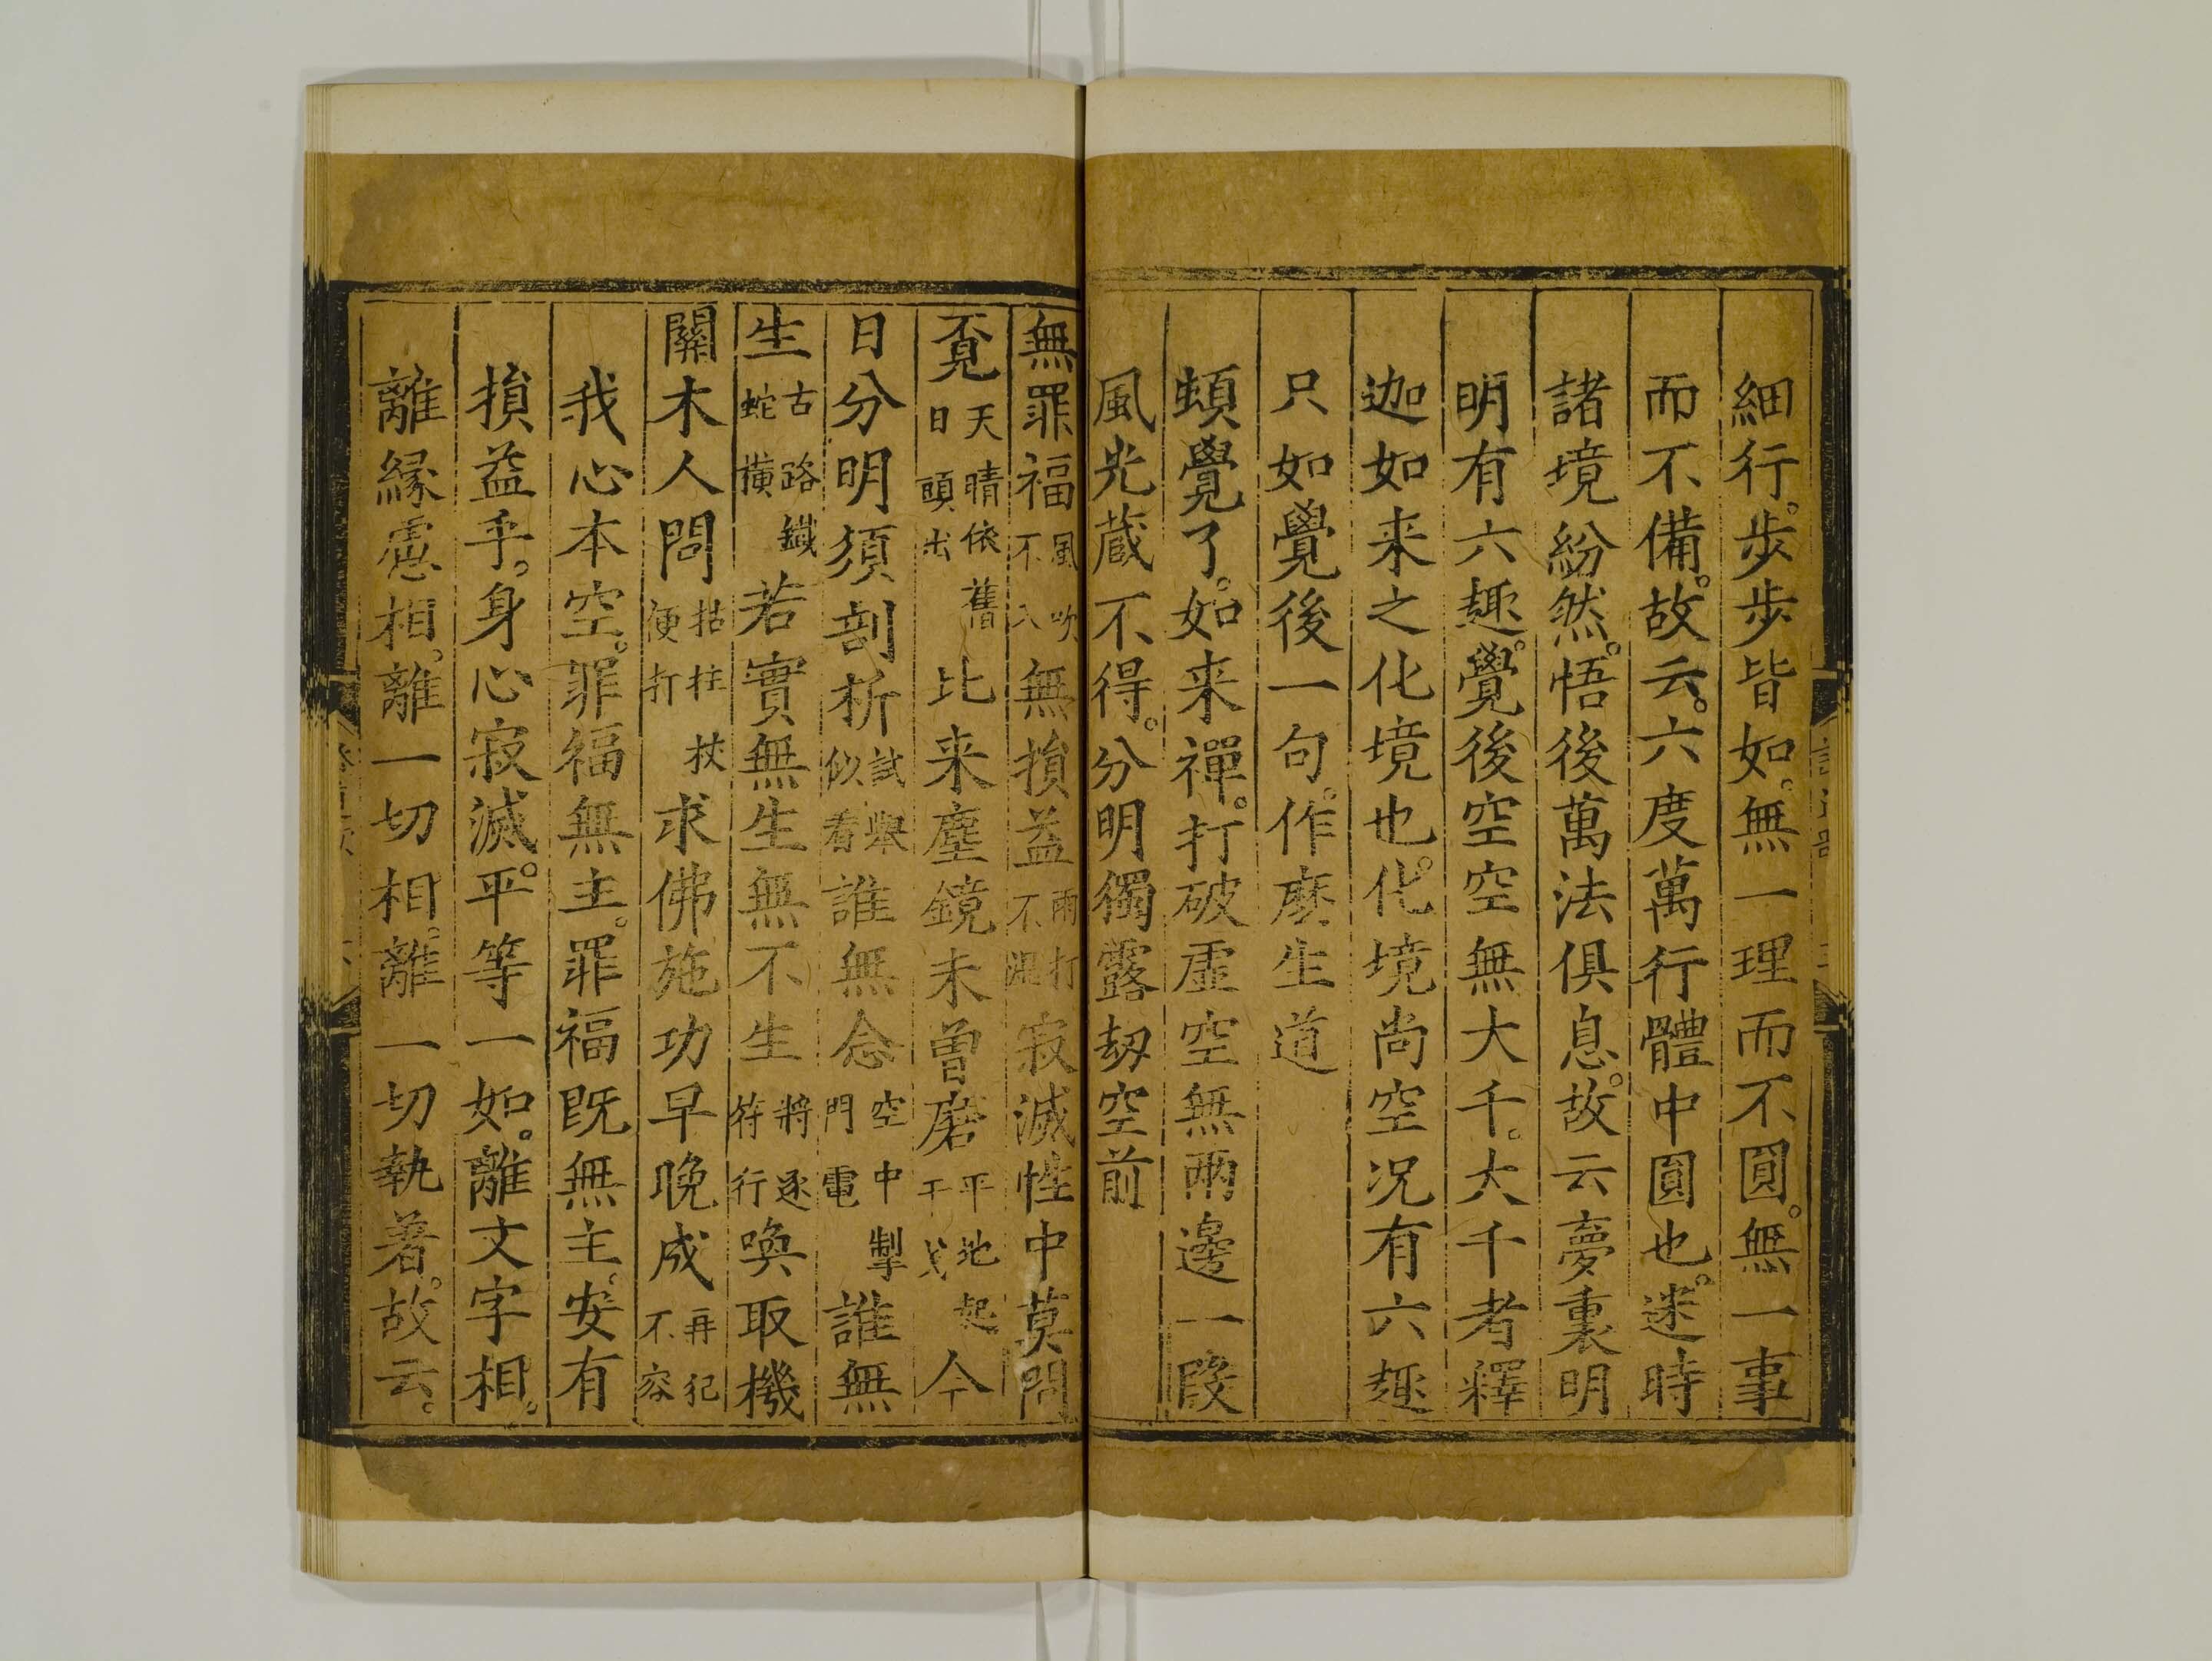 細行。步步皆如。無一理而不圓。無一事
而不備。故云。六度萬行體中圓也。迷時
諸境紛然。悟後萬法俱息。故云夢裏明
明有六趣。覺後空空無大千。大千者釋
迦如来之化境也。化境尚空况有六趣
只如覺後一句。作麽生道
頓覺了。如来禪。打破虛空無兩邊一段
風光蔵不得。分明獨露劫空前
無罪福風吹不入無損益雨打不濕寂滅性中莫問
覔天晴依舊日頭出比来塵鏡未曾磨平地起干戈今
日分明須剖析試舉似看誰無念空中掣電門誰無
生古路鐵蛇橫若實無生無不生將逐符行喚取機
關木人問拈拄杖便打求佛施功早晚成再犯不容
我心本空。罪福無主。罪福既無主。安有
損益乎。身心寂滅。平等一如。離文字相。
離緣慮相。離一切相。離一切執著。故云。